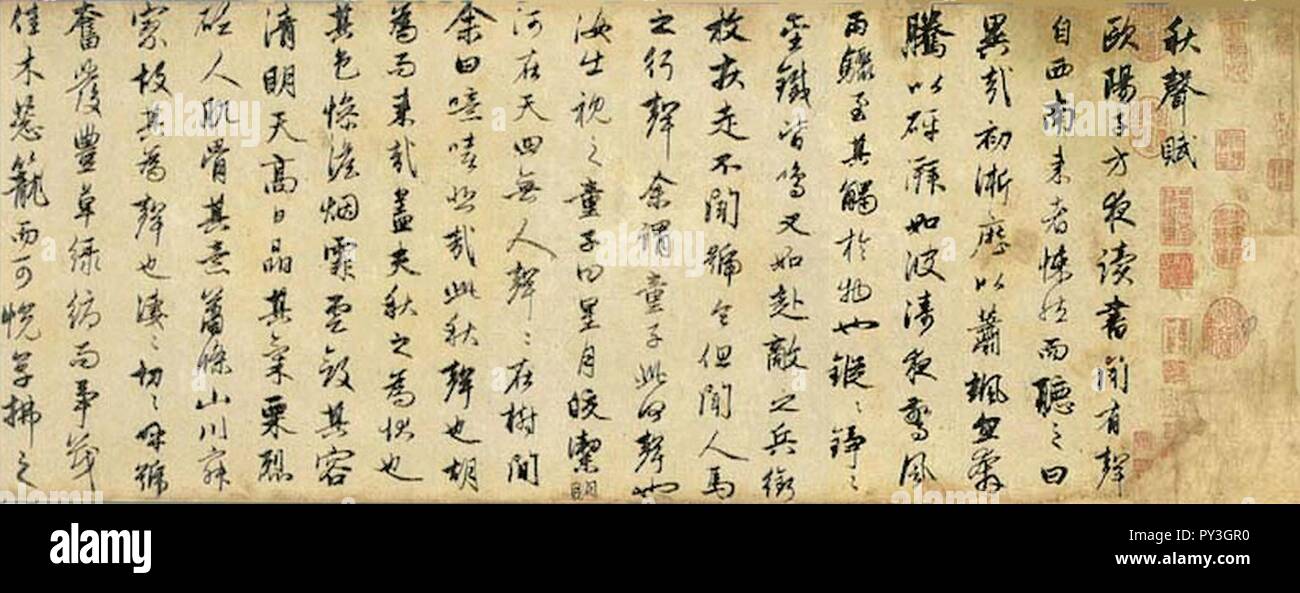 秋聲賦
歐陽子方夜读書闻有聲
自西南来者悚然而聽之曰
異哉初淅瀝以蕭颯忽奔
騰以砰湃如波涛夜驚風
雨驟至其觸於物也鏦〻錚〻
金鐵皆鳴又如赴敵之兵銜
枚疾走不聞號令但聞人馬
之行聲余謂童子此何聲也
汝出視之童子曰星月皎潔明
河在天四無人聲〻在樹間
余曰噫嘻悲哉此秋聲也胡
為而来哉盖夫秋之為状也
其色惨澹烟霏雲斂其容
清明天高日晶其氣栗烈
砭人肌骨其意蕭條山川寂
寥故其為聲也淒〻切〻呼號
奮發豐草绿縟而争茂
佳木葱籠而可悦草拂之
alamy
Image ID: PY3GR0
www.alamy.com